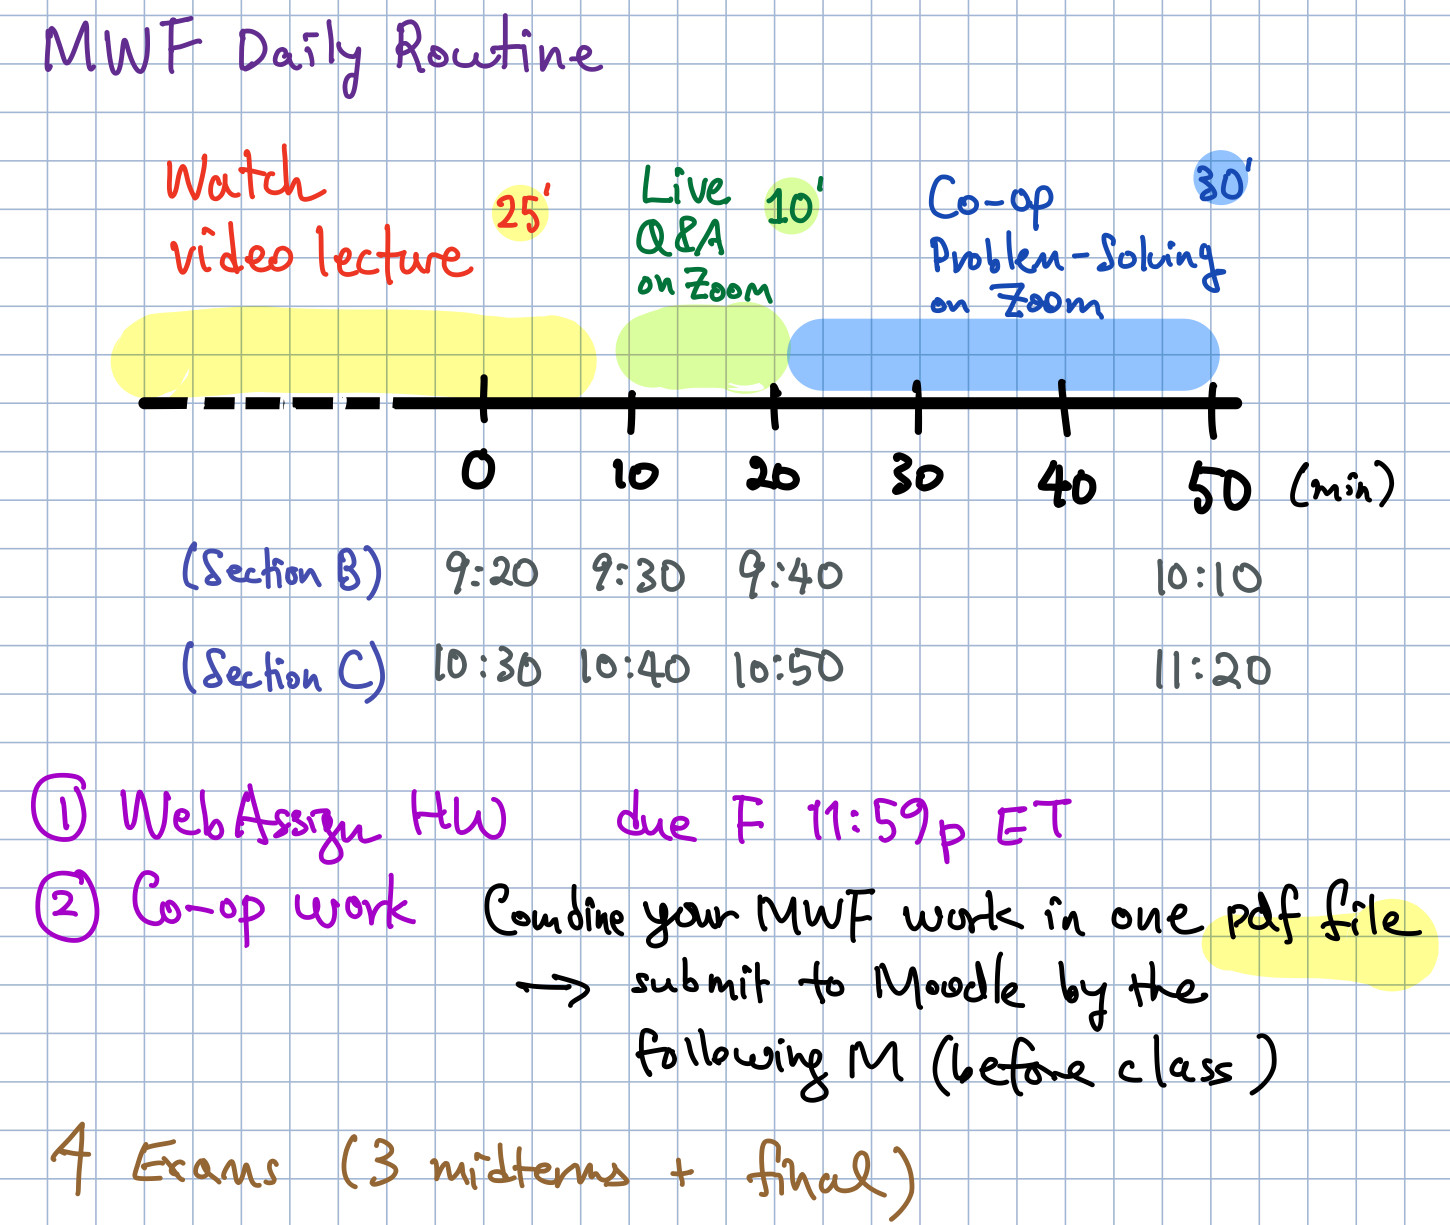 MWF Daily Routine
Watch
video lecture
25'
Live
Q&A
on Zoom
10'
Co-op
Problem-Solving
on Zoom
30'
0 10 20 30 40 50 (min)
(Section B) 9:20 9:30 9:40 10:10
(Section C) 10:30 10:40 10:50 11:20
① WebAssign HW due F 11:59p ET
② Co-op work Combine your MWF work in one pdf file
→ submit to Moodle by the
following M (before class)
4 Exams (3 midterms + final)